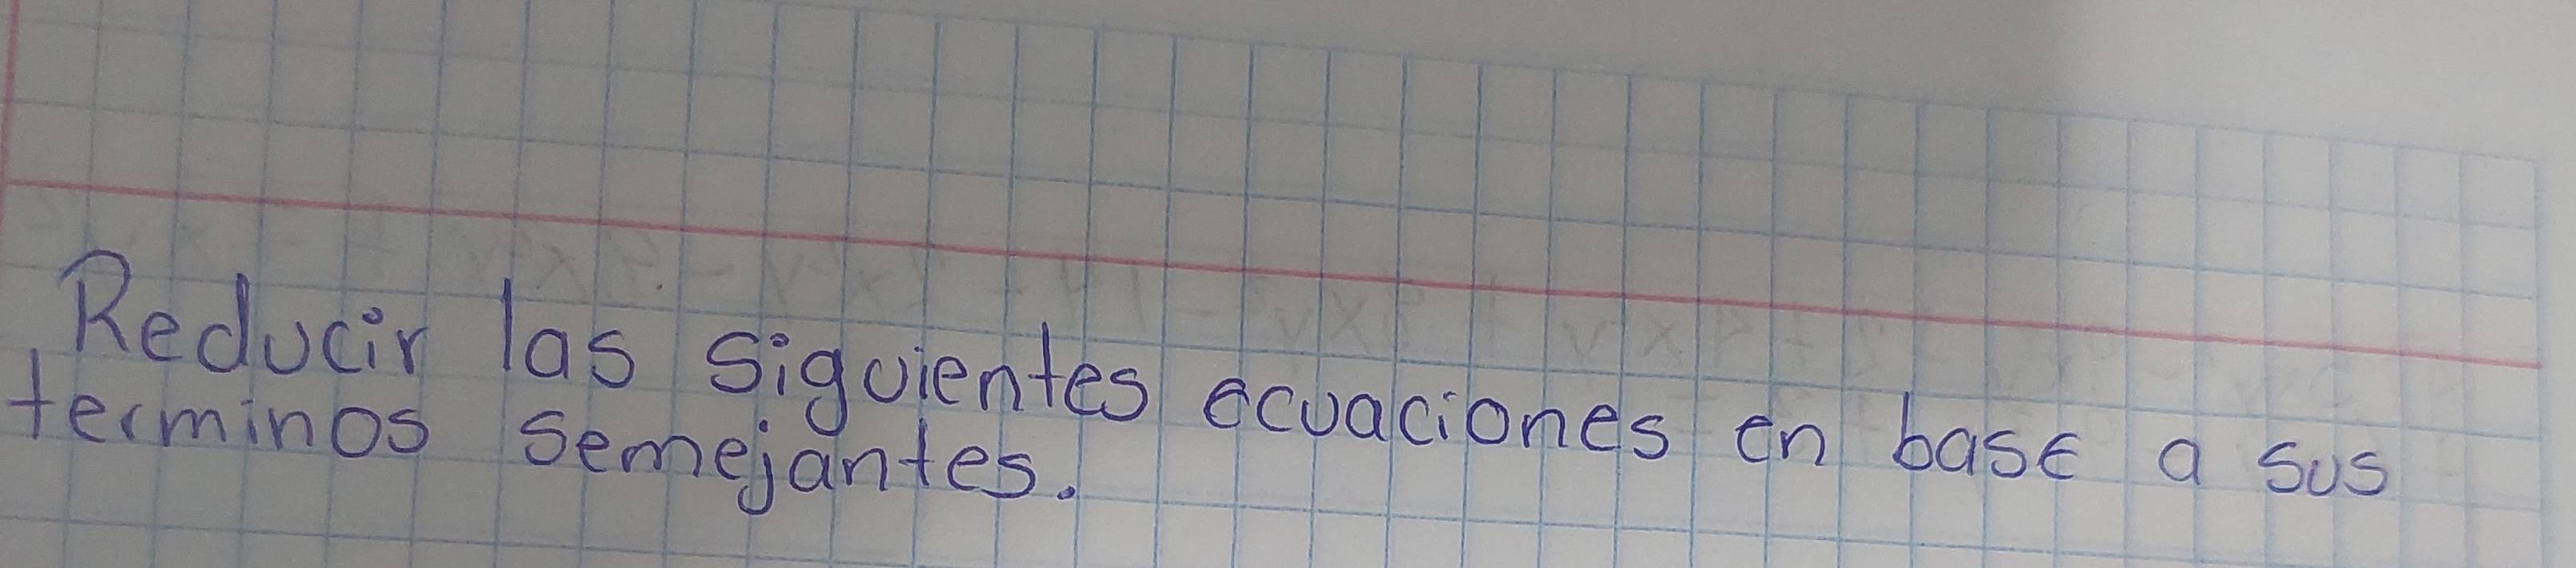 Reducir las siguientes ecuaciones en base a sus
terminos semejantes.